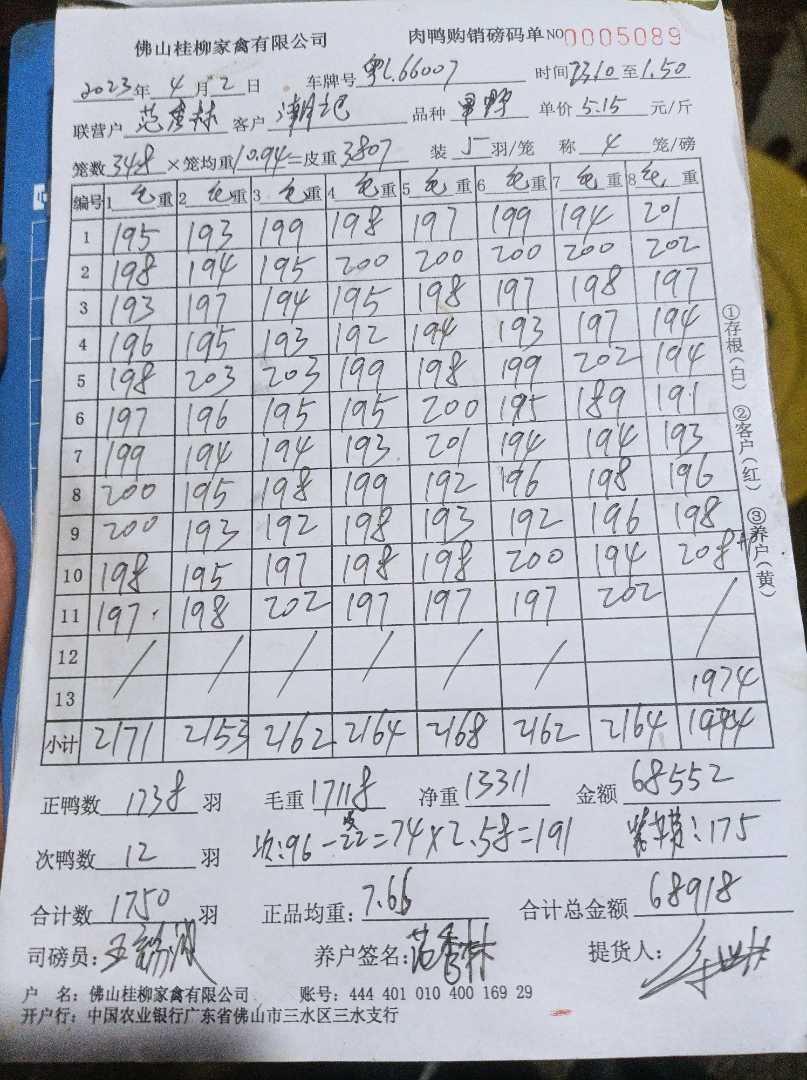 佛山桂柳家禽有限公司 肉鸭购销磅码单 NO 0005089
2023年 4 月 2 日 车牌号 粤L66007 时间 23.10 至 1.50
联营户 范秀林 客户 潮记 品种 单价 5.15 元/斤
笼数 348 ×笼均重 10.94 =皮重 3807 装 5 羽/笼 称 4 笼/磅
编号 1 毛 重 2 毛 重 3 毛 重 4 毛 重 5 毛 重 6 毛 重 7 毛 重 8 毛 重
1 195 193 199 198 197 199 194 201
2 198 194 195 200 200 200 200 202
3 193 197 194 195 198 197 198 197
4 196 195 193 192 194 193 197 194
5 198 203 203 199 198 199 202 194
6 197 196 195 195 200 195 189 191
7 199 194 194 193 201 194 194 193
8 200 195 198 199 192 196 198 196
9 200 193 192 198 193 192 196 198
10 198 195 197 198 198 200 194 208
11 197 198 202 197 197 197 202 /
12 / / / / / /
13 1974
小计 2171 2153 2162 2164 2168 2162 2164 1974
①存根(白) ②客户(红) ③养户(黄)
正鸭数 1738 羽 毛重 17118 净重 13311 金额 68552
次鸭数 12 羽 次:96-22=74×2.58=191 :175
合计数 1750 羽 正品均重: 7.66 合计总金额 68918
司磅员: 养户签名: 范秀林 提货人:
户 名: 佛山桂柳家禽有限公司 账号: 444 401 010 400 169 29
开户行: 中国农业银行广东省佛山市三水区三水支行